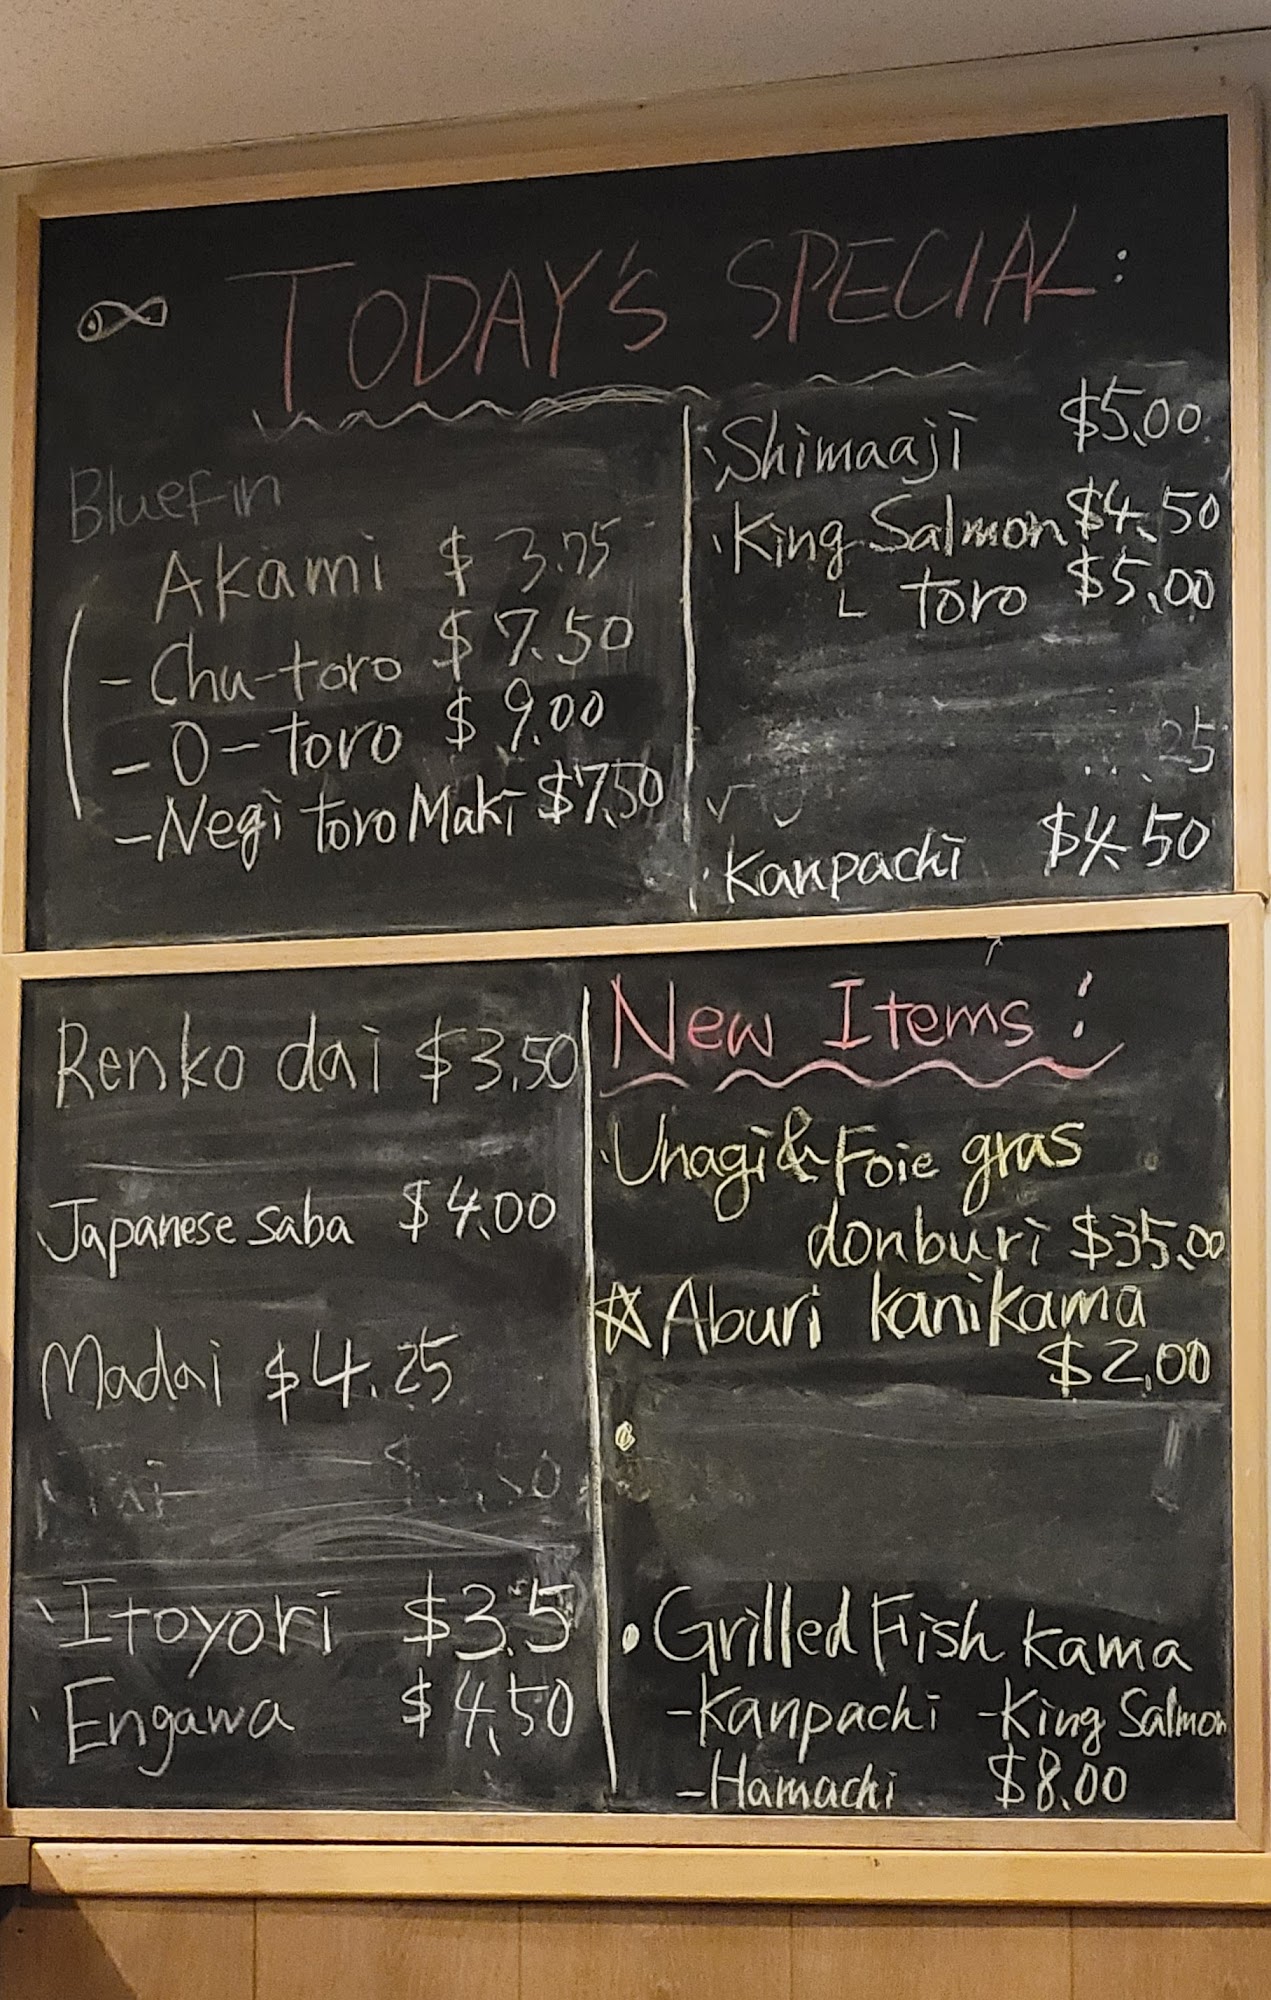 TODAY'S SPECIAL:
Bluefin
Akami $3.75
-Chu-toro $7.50
-O-toro $9.00
-Negi toro Maki $7.50
Shimaaji $5.00
King Salmon $4.50
└ toro $5.00
25
Kanpachi $4.50
Renko dai $3.50
Japanese saba $4.00
Madai $4.25
Itoyori $3.5
Engawa $4.50
New Items:
Unagi & Foie gras
donburi $35.00
☆ Aburi kanikama
$2.00
• Grilled Fish kama
-Kanpachi -King Salmon
-Hamachi $8.00